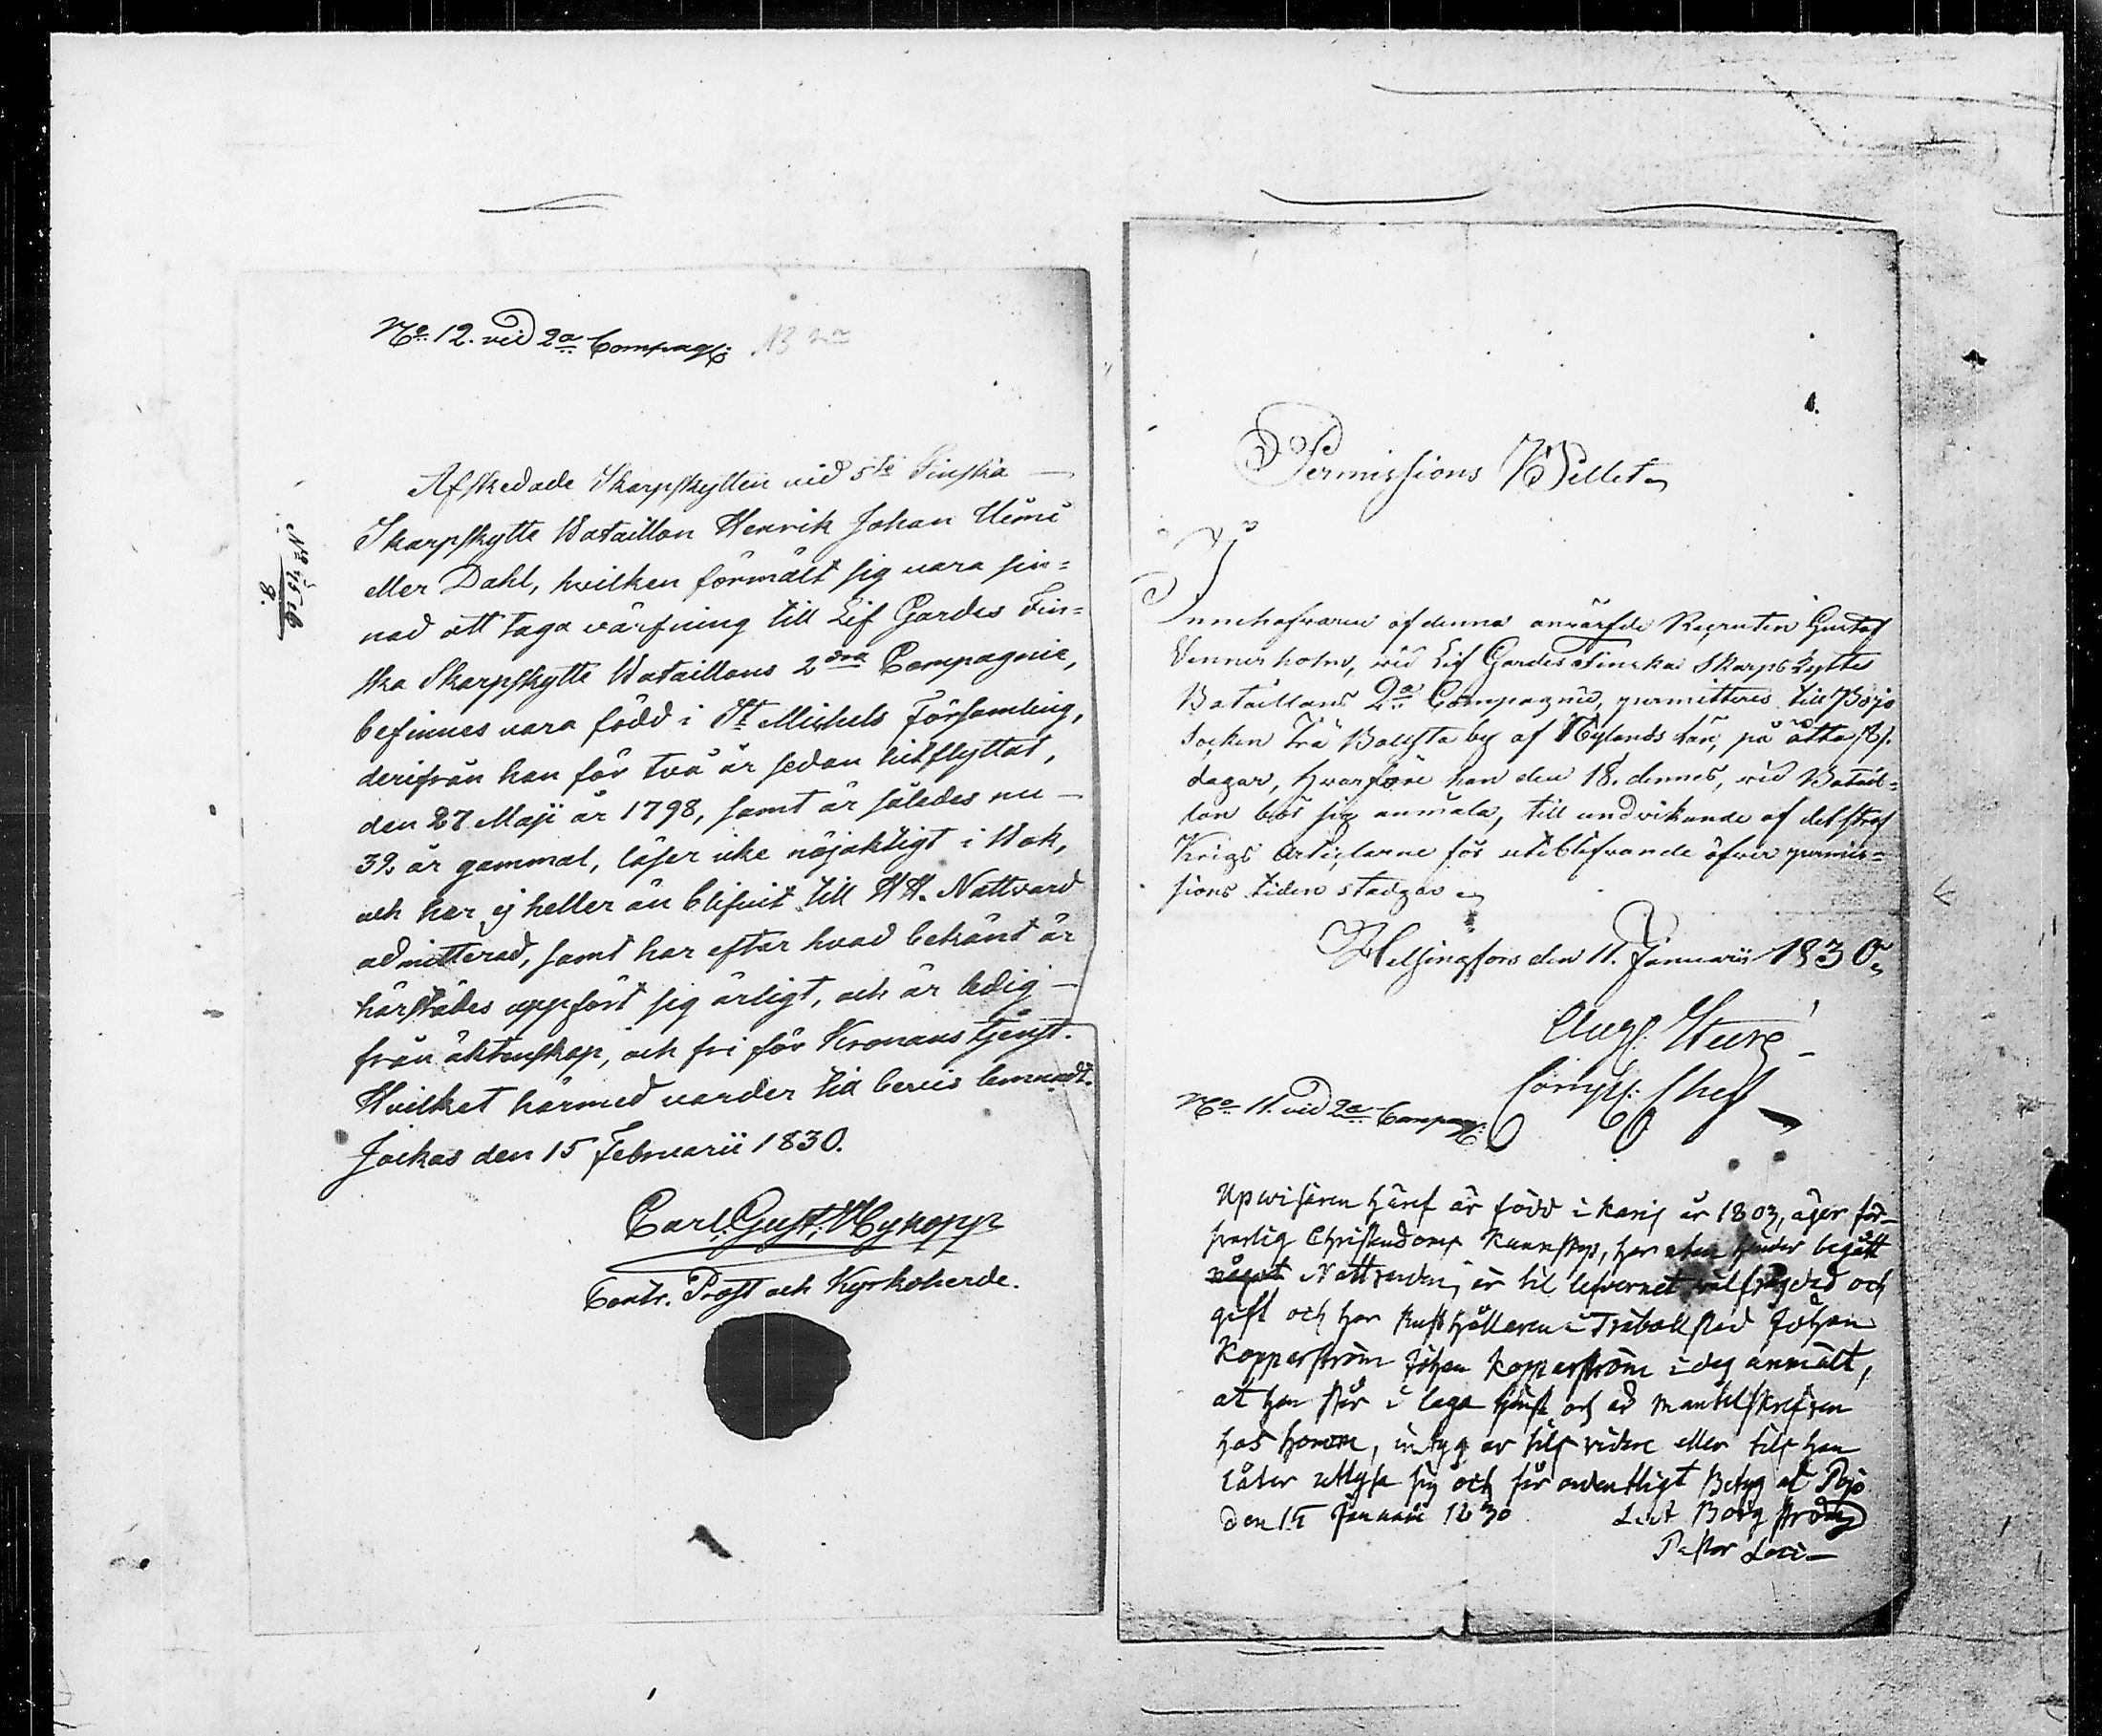 No 12. vid 2a Compag:
Afskedade Skarpskytten vid 5te Finska
Skarpskytte Bataillon Henrik Johan
eller Dahl, hvilken förmält sig vara sin-
nad att taga värfning till Lif Gardes Fin-
ska Skarpskytte Bataillons 2dra Compagnie,
befinnes vara född i St Michels Församling,
derifrån han för två år sedan hitflyttat,
den 27 Maji år 1798, samt är således nu
32 år gammal, läser icke nöjaktigt i Bok,
och har ej heller än blifvit till HH. Nattvard
admitterad, samt har efter hvad bekant är
härstädes uppfört sig ärligt, och är ledig
från äktenskap, och fri för Kronans tjenst.
Hvilket härmed varder till bevis lemnadt.
Jockas den 15 Februarii 1830.
Carl Gust.
Contr. Prost och Kyrkoherde.
1.
Permissions Billet
Innehafvaren af denna anvärfde Recruten Gustaf
Vennerholm, vid Lif Gardes Finska Skarpskytte
Bataillons 2a Compagnie, permitteras till Pojo
Socken Trä Bollsta by af Nylands Län, på åtta
dagar, hvarföre han den 18. dennes, vid Batail-
lon bör sig anmäla, till undvikande af det straf
Krigs Articlarne för uteblifvande öfver permis-
sions tiden stadgar
Helsingfors den 11. Januarii 1830.
Comp: Chef
No 11. vid 2a Compag:
Upvisaren häraf är född i Karis år 1803, äger för-
svarlig Christendoms Kunskap, har begått
Nattvarden, är til lefvernet välfrägdad och
gift och har Rusthållaren i Träbollstad Johan
Kopparström Johan Kopparström i dag anmält,
at han står i laga tjenst och är Mantalskrifven
hos honom, tils vidare eller tils han
låter utlysa sig och får ordentligt Betyg at Pojo
den 15 Januarii 1830 Borgström
Pastor Loci